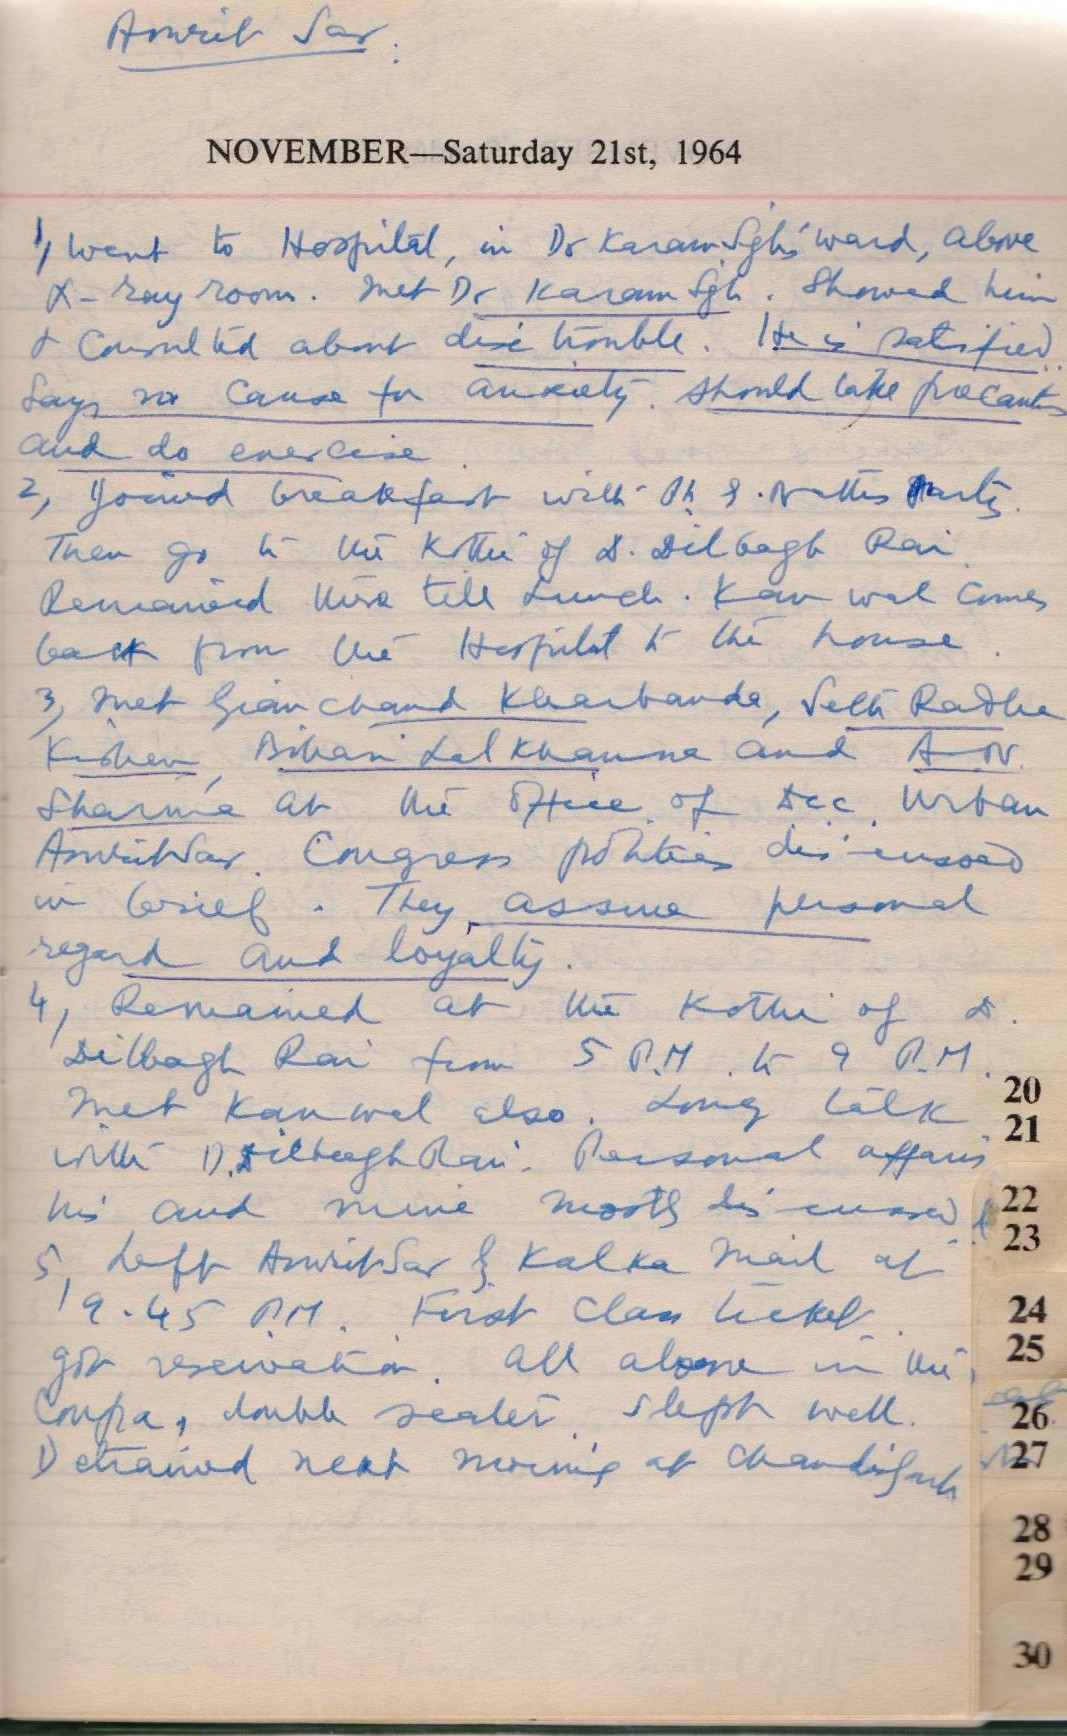 Amrit Sar.
NOVEMBER—Saturday 21st, 1964
1, Went to Hospital, in Dr Karam Sghs' ward, above
X-ray room. Met Dr Karam Sgh. Showed him
& Consulted about disc trouble. He is satisfied.
Says no cause for anxiety. Should take precautns
and do exercise.
2, Joined breakfast with Party.
Then go to the Kothi of D. Dilbagh Rai
Remained there till Lunch. Kanwal comes
back from the Hospital to the house.
3, Met Gian Chand Kharbanda, Seth Radha
Kishen, Bihari Lal Khanna and A.N.
Sharma at the Office of Dcc Urban
AmritSar. Congress politics discussed
in brief. They assure personal
regard and loyalty.
4, Remained at the Kothi of D.
Dilbagh Rai from 5 P.M. to 9 P.M.
Met Kanwal also. Long talk
with D. Dilbagh Rai. Personal affairs
his and mine mostly discussed.
5, Left AmritSar by Kalka Mail at
19.45 P.M. First Class ticket.
got reservation. All alone in the
Coupa, double seater. Slept well.
Detrained next morning at Chandigarh
20
21
22
23
24
25
26
27
28
29
30